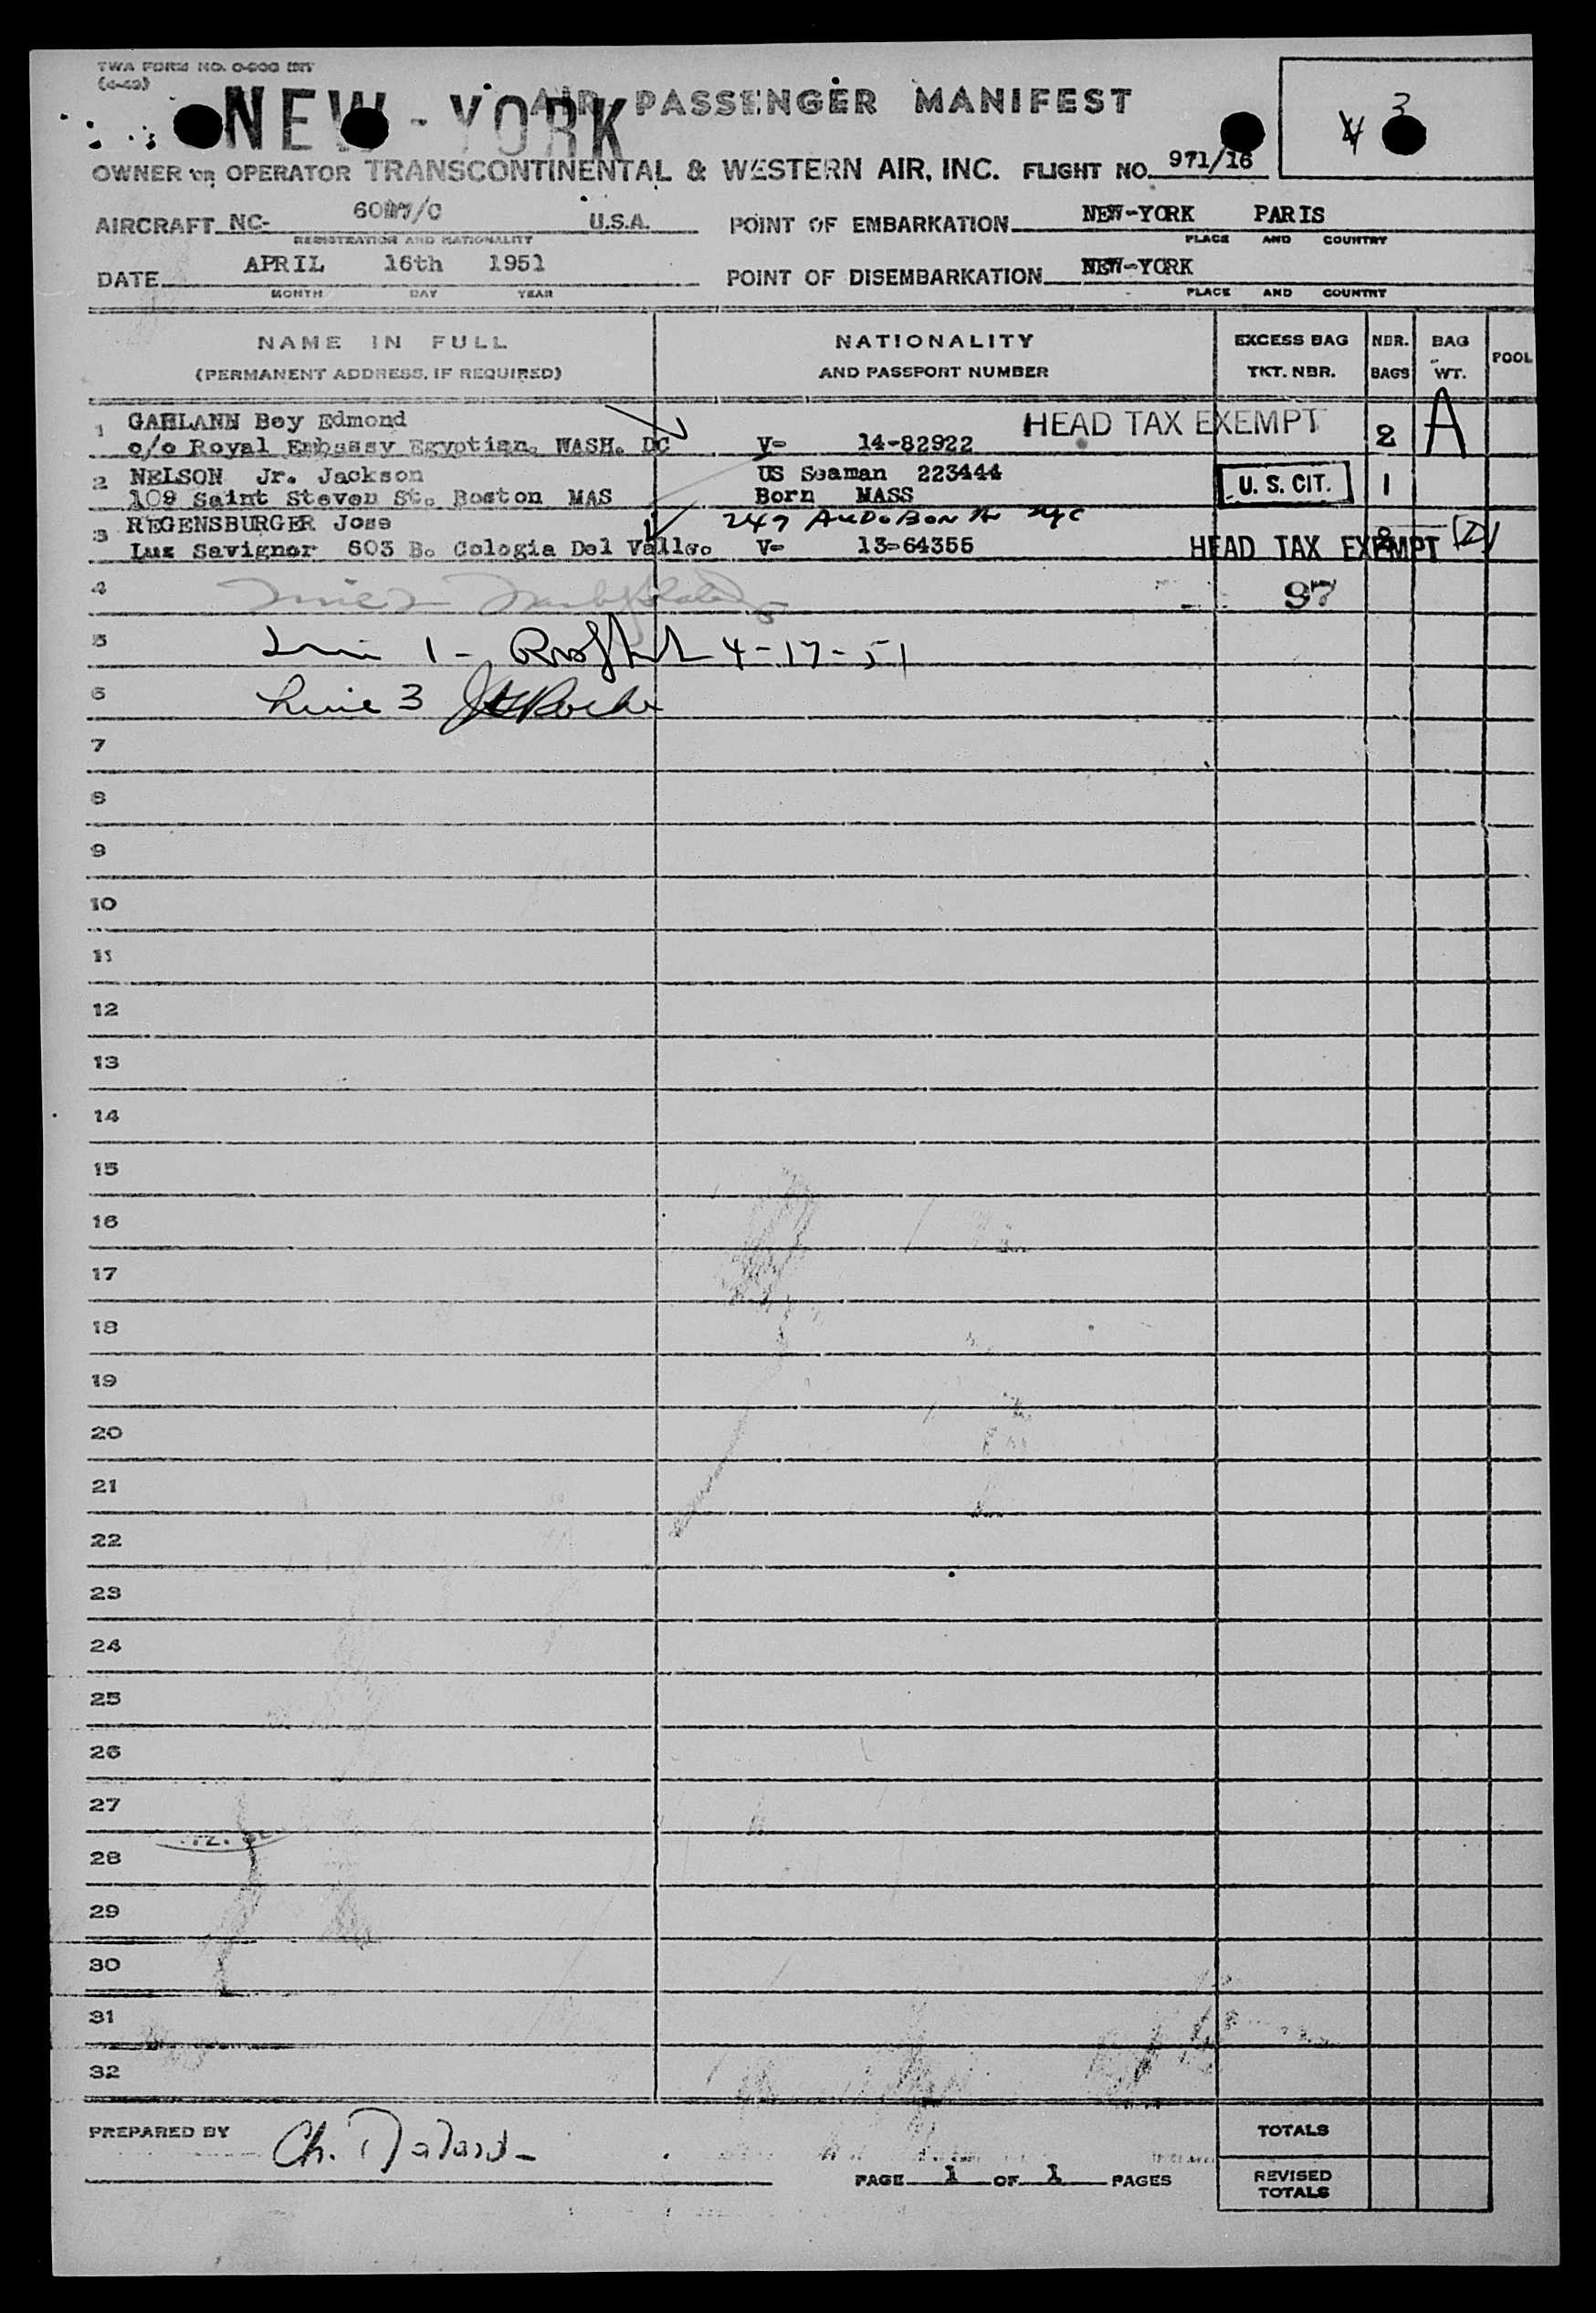 TWA FORM NO.
NEW-YORK
AIR PASSENGER MANIFEST
3
OWNER OR OPERATOR TRANSCONTINENTAL & WESTERN AIR, INC. FLIGHT NO. 971/16
AIRCRAFT NC- U.S.A. POINT OF EMBARKATION NEW-YORK PARIS
REGISTRATION AND NATIONALITY PLACE AND COUNTRY
DATE APRIL 16th 1951 POINT OF DISEMBARKATION NEW-YORK
MONTH DAY YEAR PLACE AND COUNTRY
NAME IN FULL NATIONALITY EXCESS BAG NBR. BAG POOL
(PERMANENT ADDRESS, IF REQUIRED) AND PASSPORT NUMBER TKT. NBR. BAGS WT.
1 GAHLANN Bey Edmond HEAD TAX EXEMPT 2 A
c/o Royal Embassy Egyptian. WASH. DC V- 14-82922
2 NELSON Jr. Jackson US Seaman 223444 U. S. CIT. 1
109 Saint Steven St. Boston MAS Born MASS
3 REGENSBURGER Jose 247 AuDoBon NYC
Luz Savignor 603 B. Cologia Del Valle. V- 13-64355 HEAD TAX EXEMPT 2
4 97
5 Line 1 - 4-17-51
6 Line 3
7
8
9
10
11
12
13
14
15
16
17
18
19
20
21
22
23
24
25
26
27
28
29
30
31
32
PREPARED BY Ch. TOTALS
PAGE 1 OF 1 PAGES REVISED TOTALS